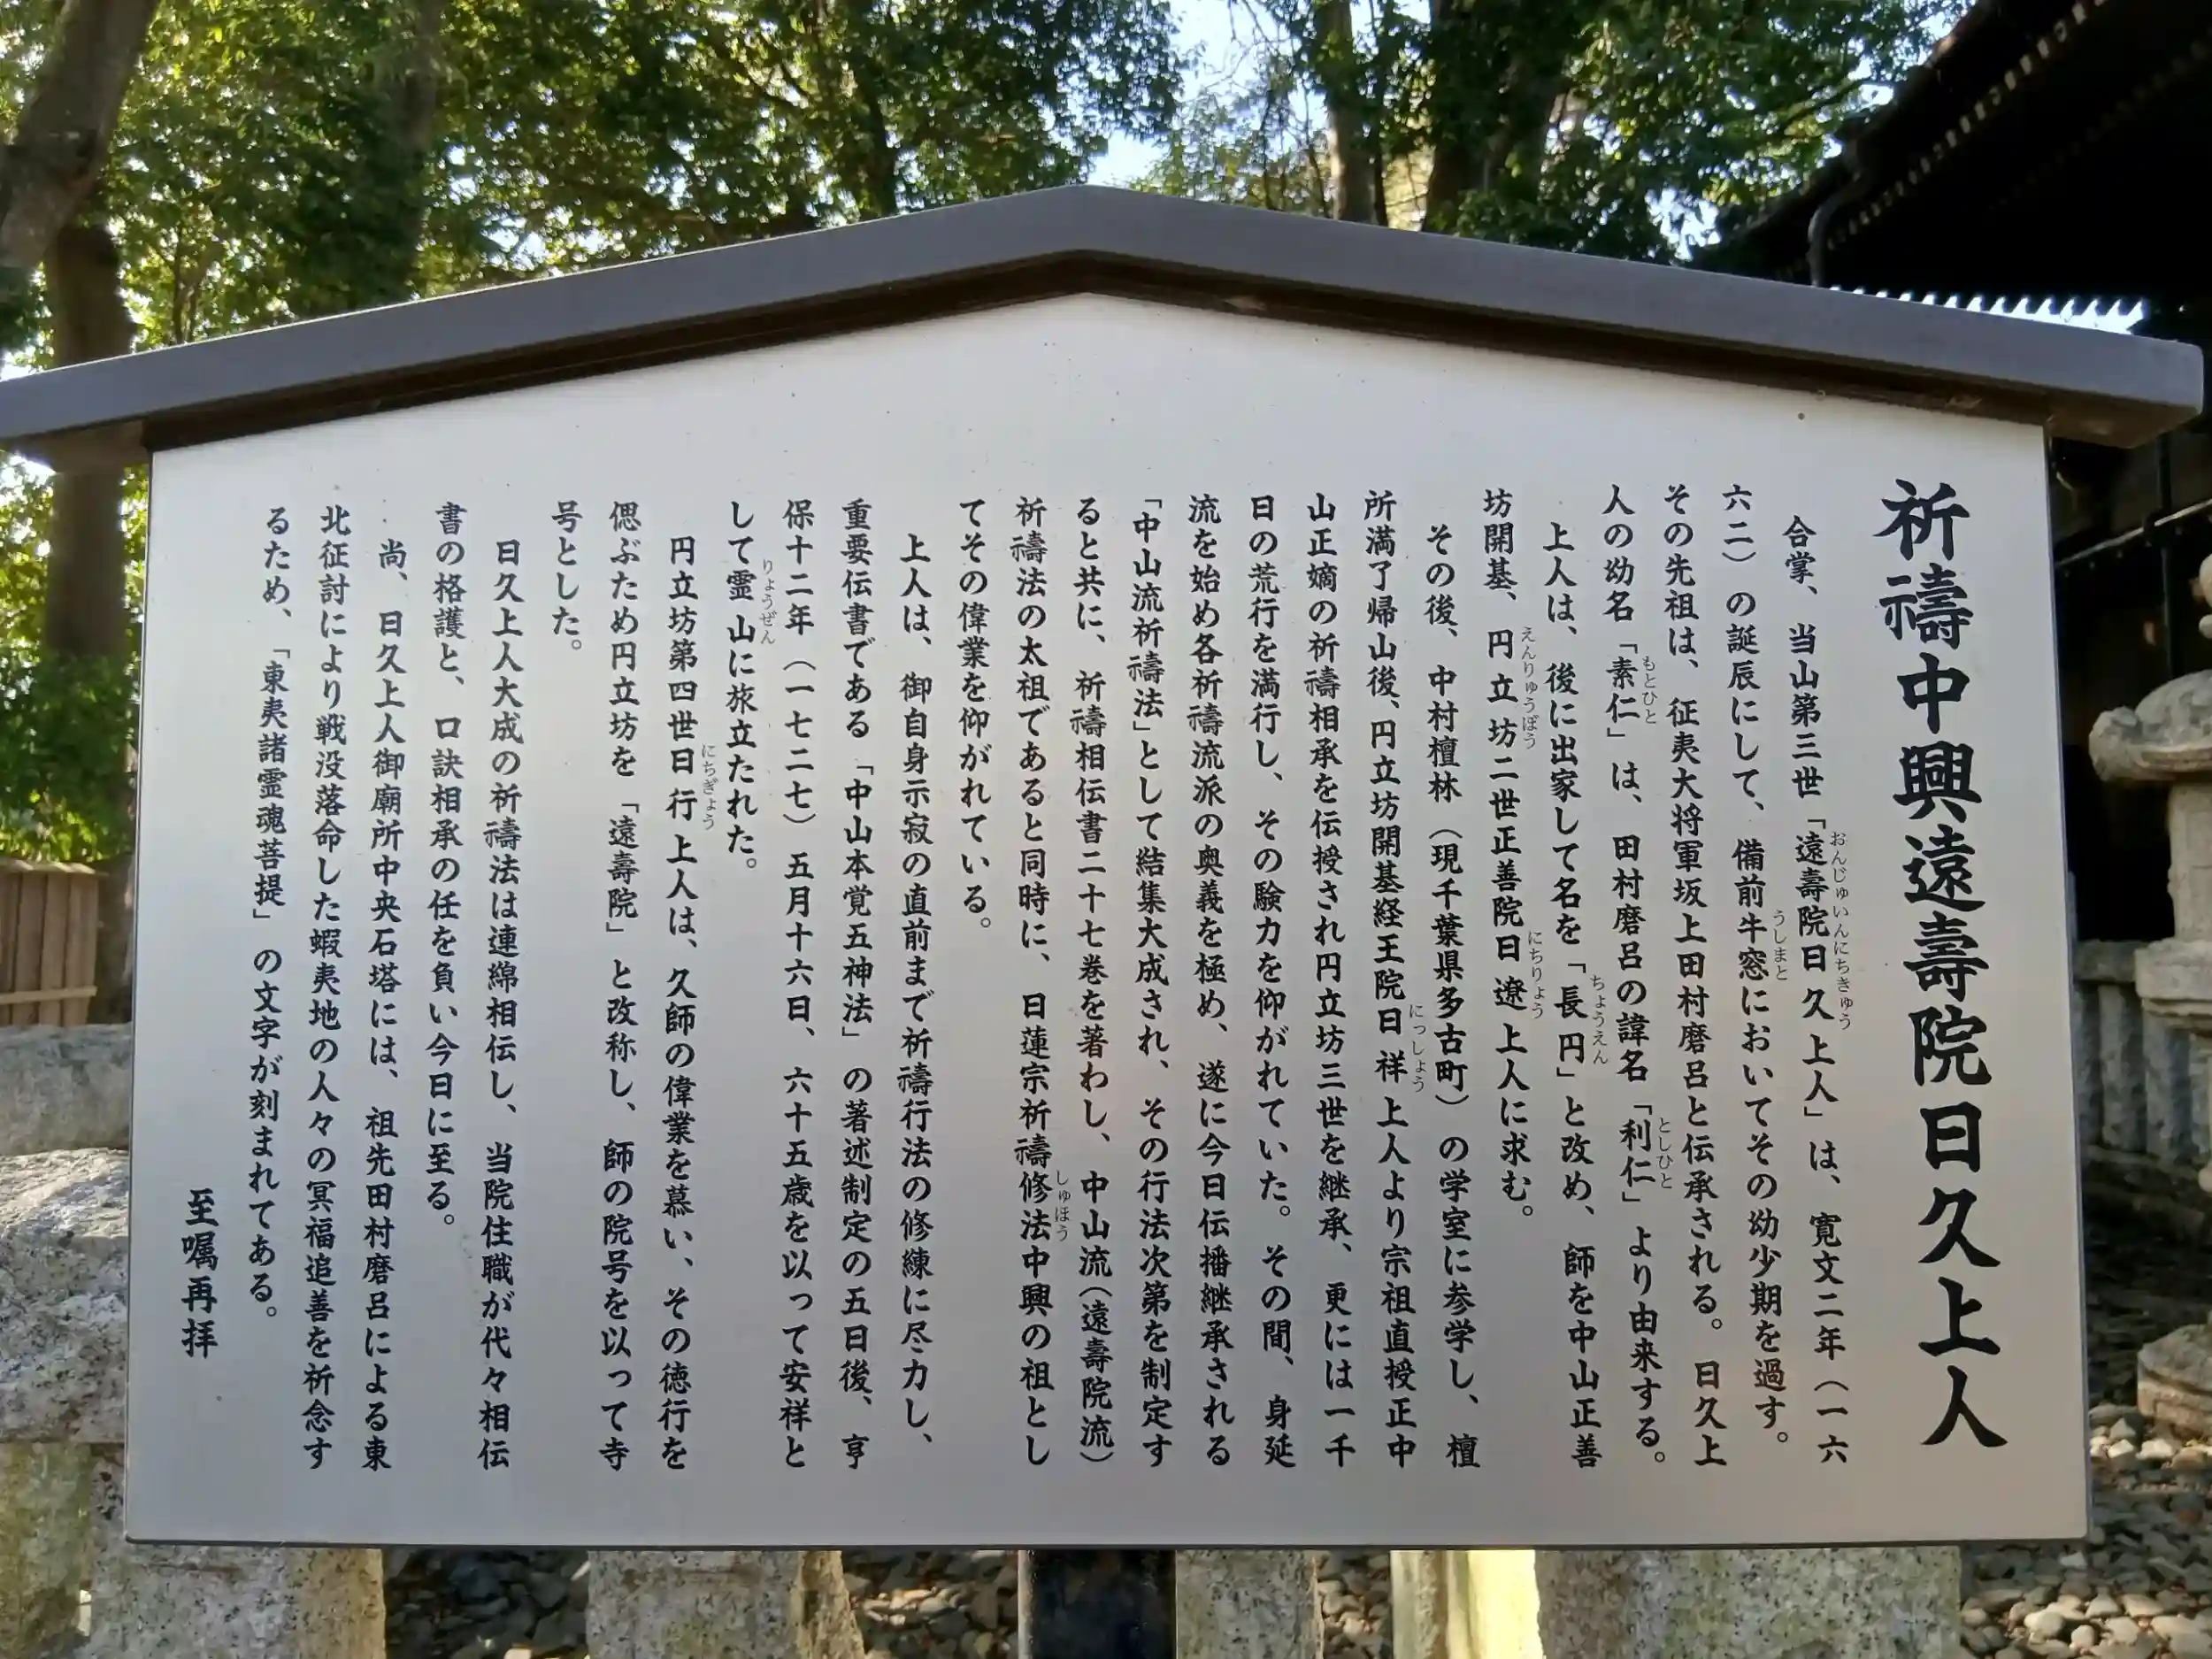 祈禱中興遠壽院日久上人
合掌、当山第三世「遠壽院日久上人」は、寛文二年（一六
六二）の誕辰にして、備前牛窓においてその幼少期を過す。
その先祖は、征夷大将軍坂上田村磨呂と伝承される。日久上
人の幼名「素仁」は、田村磨呂の諱名「利仁」より由来する。
上人は、後に出家して名を「長円」と改め、師を中山正善
坊開基、円立坊二世正善院日遼上人に求む。
その後、中村檀林（現千葉県多古町）の学室に参学し、檀
所満了帰山後、円立坊開基経王院日祥上人より宗祖直授正中
山正嫡の祈禱相承を伝授され円立坊三世を継承、更には一千
日の荒行を満行し、その験力を仰がれていた。その間、身延
流を始め各祈禱流派の奥義を極め、遂に今日伝播継承される
「中山流祈禱法」として結集大成され、その行法次第を制定す
ると共に、祈禱相伝書二十七巻を著わし、中山流（遠壽院流）
祈禱法の太祖であると同時に、日蓮宗祈禱修法中興の祖とし
てその偉業を仰がれている。
上人は、御自身示寂の直前まで祈禱行法の修練に尽力し、
重要伝書である「中山本覚五神法」の著述制定の五日後、享
保十二年（一七二七）五月十六日、六十五歳を以って安祥と
して霊山に旅立たれた。
円立坊第四世日行上人は、久師の偉業を慕い、その徳行を
偲ぶため円立坊を「遠壽院」と改称し、師の院号を以って寺
号とした。
日久上人大成の祈禱法は連綿相伝し、当院住職が代々相伝
書の格護と、口訣相承の任を負い今日に至る。
尚、日久上人御廟所中央石塔には、祖先田村磨呂による東
北征討により戦没落命した蝦夷地の人々の冥福追善を祈念す
るため、「東夷諸霊魂菩提」の文字が刻まれてある。
至嘱再拝
おんじゅいんにちきゅう
うしまと
もとひと
としひと
ちょうえん
えんりゅうぼう
にちりょう
にっしょう
しゅほう
りょうぜん
にちぎょう